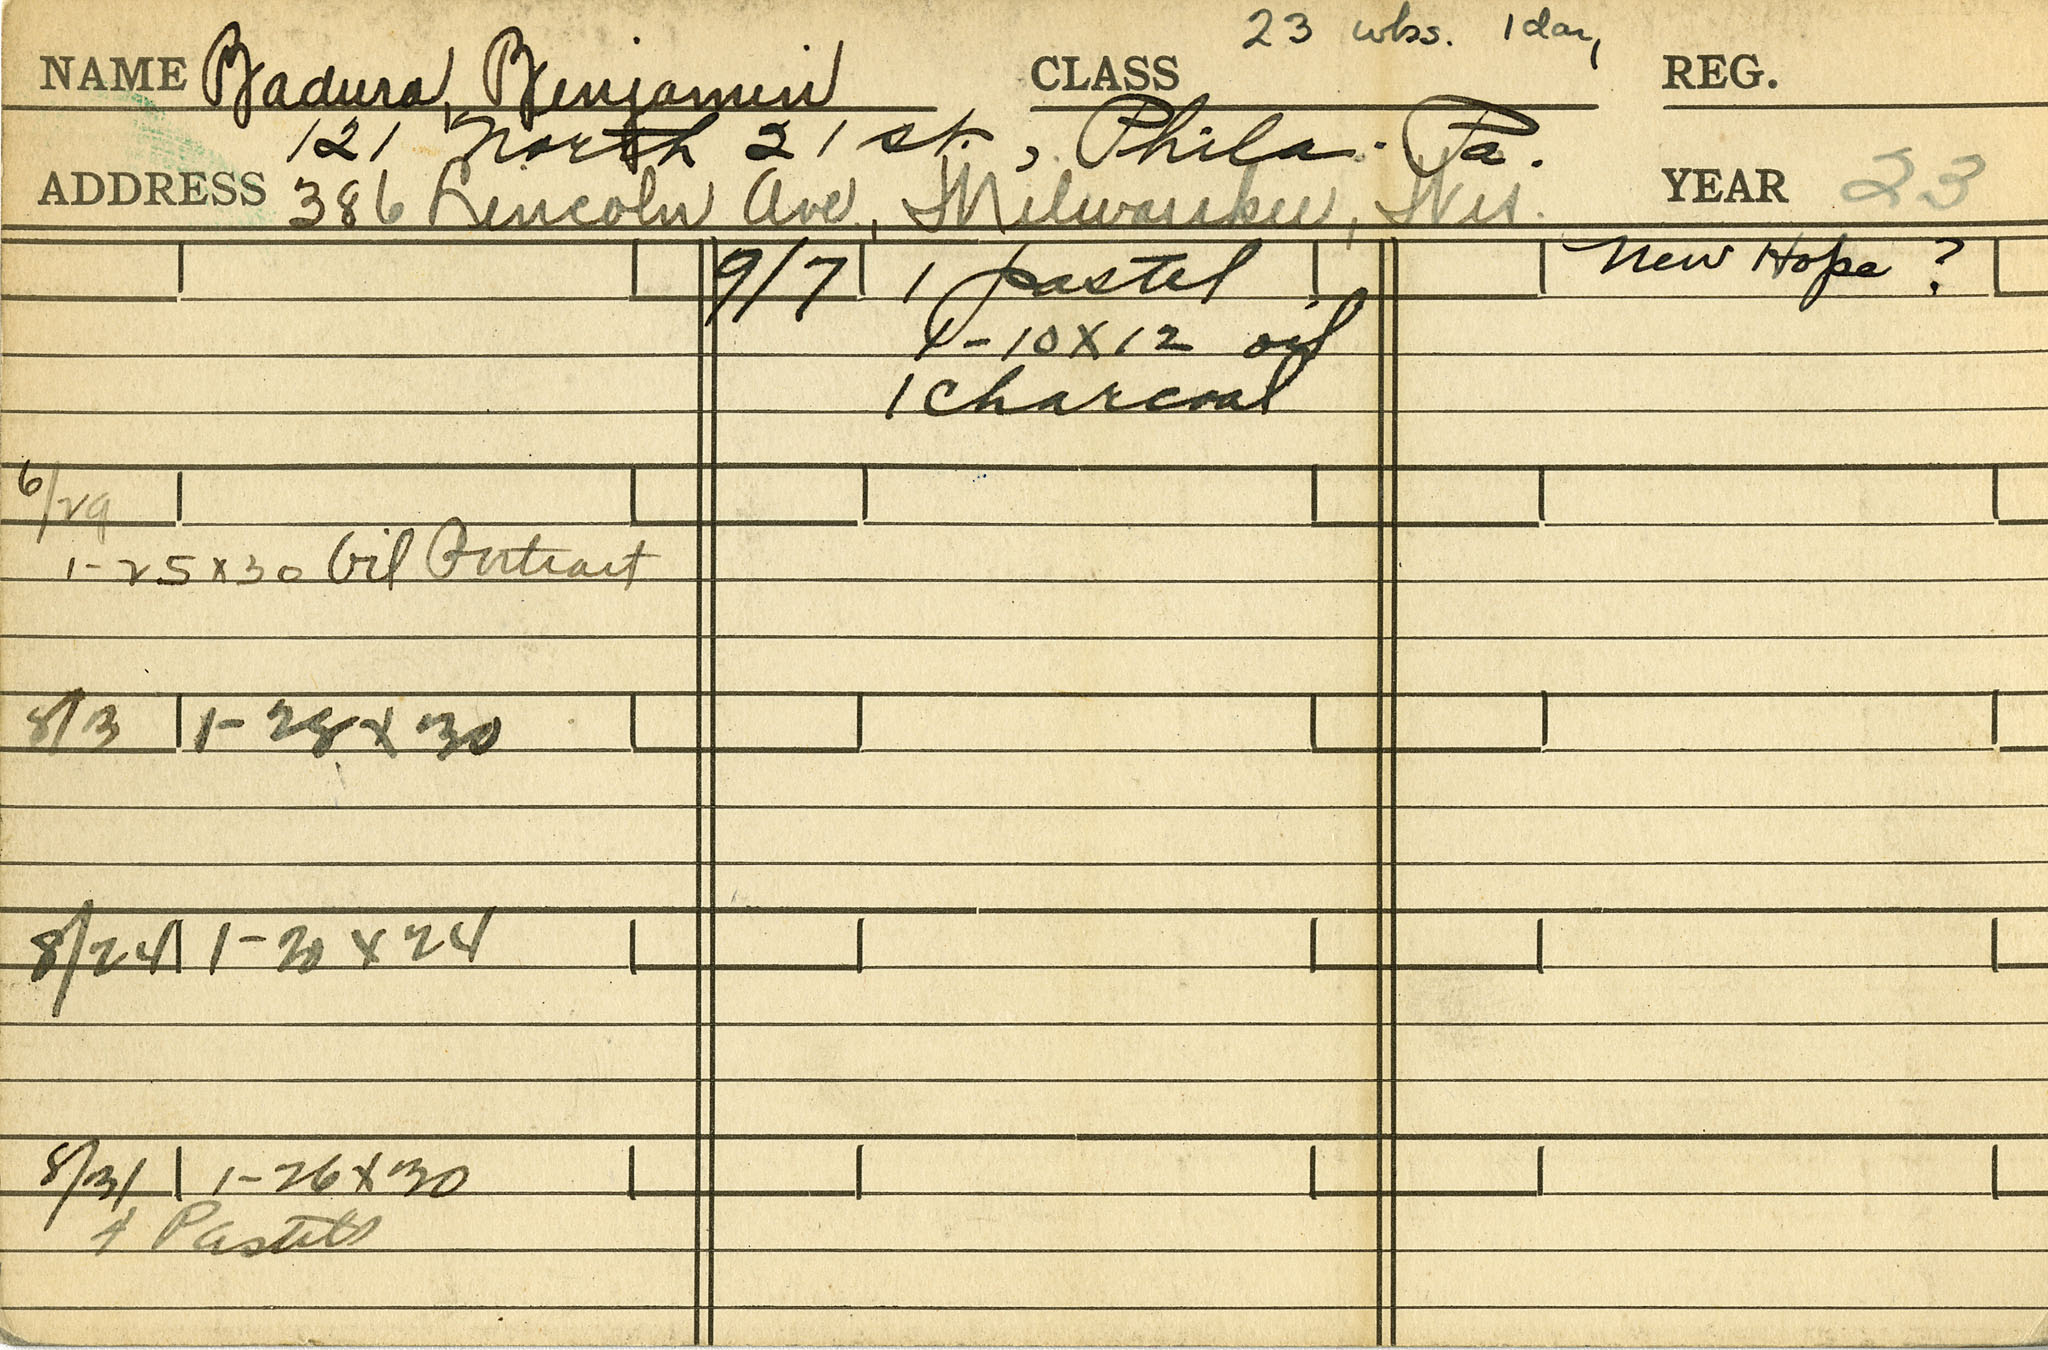 23 wks. 1 day
NAME Badura, Benjamin CLASS REG.
121 North 21 st., Phila. Pa.
ADDRESS 386 Lincoln Ave., Milwaukee, Wis. YEAR 23
9/7 1 pastel New Hope ?
1-10x12 oil
1 charcoal
6/29
1-25x30 Oil Portrait
8/3 1-28x30
8/24 1-20x24
8/31 1-26x30
Pastels